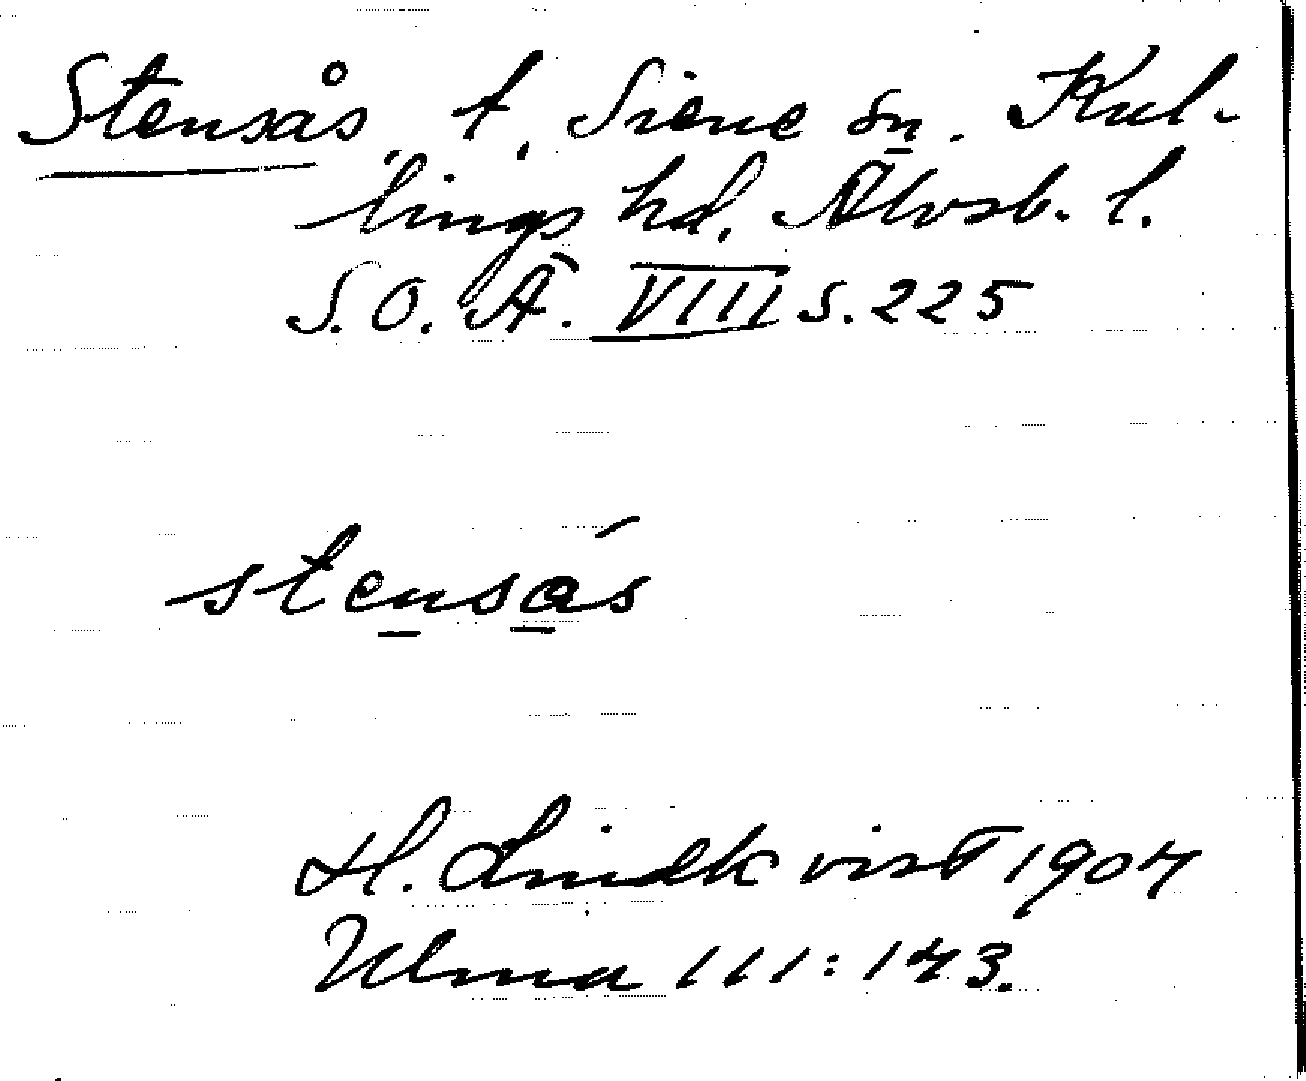 Stensås, t, Siene sn. Kul-
lings hd. Älvsb. l.
S. O. Ä. VIII s. 225
stensås
H. Lindkvist 1904
Ulma 111:143.